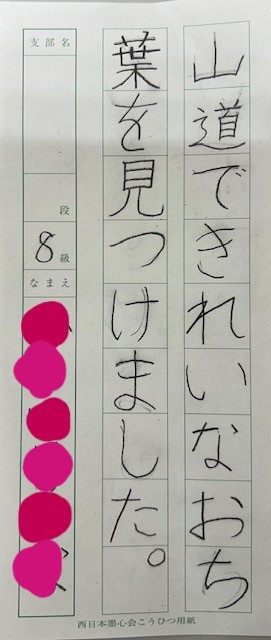 山道できれいなおち
葉を見つけました。
支部名
段
8級
なまえ
西日本墨心会こうひつ用紙